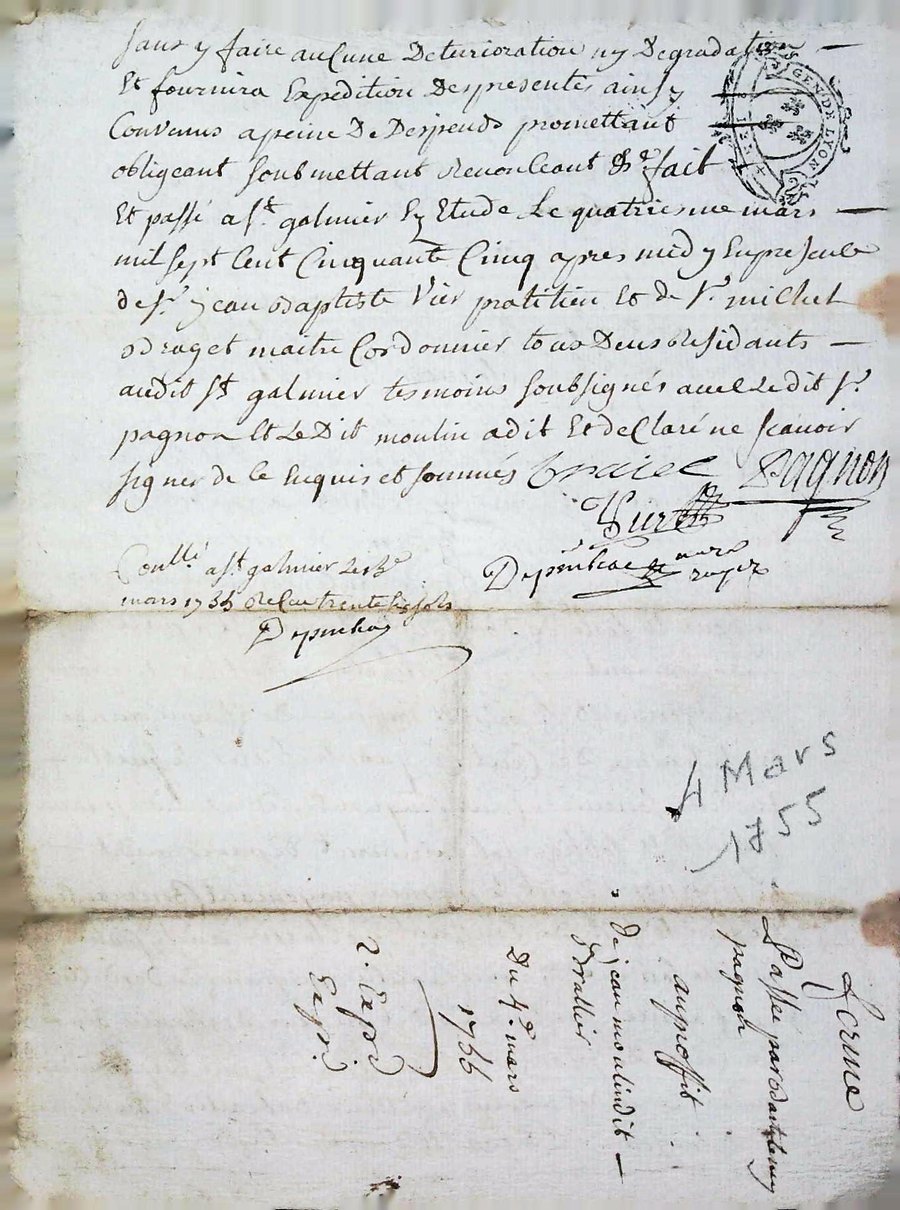 sans y faire aucune Deterioration ny Degradation
Et fournira Expedition Despresentes ainsy
Convenus apeine De Despends promettant
obligeant soubmettant Renonceant &c fait
Et passé a st. galmier En Etude Le quatriesme mars
mil sept Cent Cinquante Cinq apres midy En presence
de sr. jean Baptiste Vier pratitien Et de sr. michel
Draget maitre Cordonnier tous Deux Residants
audit st galmier tesmoins soubsignés avec Ledit sr.
pagnon Et Le Dit moulin a dit Et declaré ne scavoir
signer de ce Enquis et sommés
Pagnon
Conllé. a st. galmier Le
mars 1755 Recu trente six sols
GEN DE LYON
4 Mars
1755
ferme
Passée par Barthelemy
pagnon
auproffit
De jean moulin dit
Du 4e. mars
1755
2. Exp.